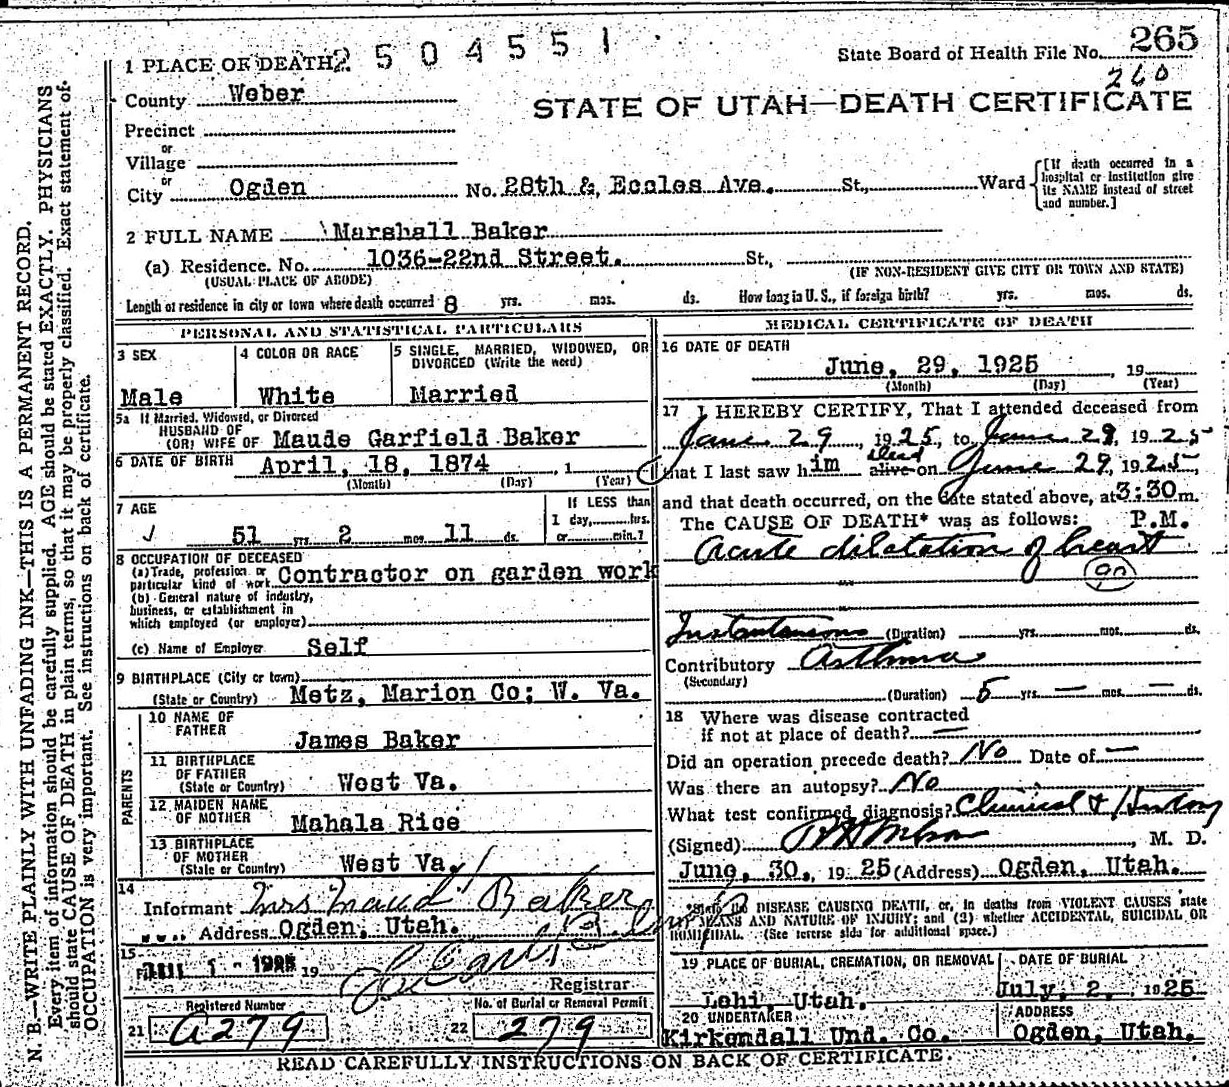 2504551
State Board of Health File No. 265
260
1 PLACE OF DEATH
County Weber
STATE OF UTAH—DEATH CERTIFICATE
Precinct
or
Village
or
City Ogden No. 28th & Eccles Ave. St., Ward
[If death occurred in a hospital or institution give its NAME instead of street and number.]
2 FULL NAME Marshall Baker
(a) Residence. No. 1036-22nd Street. St.,
(USUAL PLACE OF ABODE) (IF NON-RESIDENT GIVE CITY OR TOWN AND STATE)
Length of residence in city or town where death occurred 8 yrs. mos. ds. How long in U. S., if foreign birth? yrs. mos. ds.
PERSONAL AND STATISTICAL PARTICULARS
3 SEX
Male
4 COLOR OR RACE
White
5 SINGLE, MARRIED, WIDOWED, OR DIVORCED (Write the word)
Married
5a If Married, Widowed, or Divorced
HUSBAND OF
(OR) WIFE OF Maude Garfield Baker
6 DATE OF BIRTH April, 18, 1874 , 1
(Month) (Day) (Year)
7 AGE
51 yrs. 2 mos. 11 ds.
If LESS than
1 day, hrs.
or min.?
8 OCCUPATION OF DECEASED
(a) Trade, profession or
particular kind of work Contractor on garden work
(b) General nature of industry,
business, or establishment in
which employed (or employer)
(c) Name of Employer Self
9 BIRTHPLACE (City or town)
(State or Country) Metz, Marion Co; W. Va.
PARENTS
10 NAME OF
FATHER James Baker
11 BIRTHPLACE
OF FATHER
(State or Country) West Va.
12 MAIDEN NAME
OF MOTHER Mahala Rice
13 BIRTHPLACE
OF MOTHER
(State or Country) West Va.
14
Informant Mrs Maud Baker
Address Ogden, Utah.
15
1 - 1925 19
Registrar
Registered Number
21 a279
No. of Burial or Removal Permit
22 279
MEDICAL CERTIFICATE OF DEATH
16 DATE OF DEATH
June, 29, 1925 , 19
(Month) (Day) (Year)
17 I HEREBY CERTIFY, That I attended deceased from
June 29, 1925, to June 29, 1925
that I last saw him alive dead on June 29, 1925,
and that death occurred, on the date stated above, at 3:30 m.
The CAUSE OF DEATH* was as follows: P.M.
Acute dilatation of heart
90
Instantaneous (Duration) yrs. mos. ds.
Contributory Asthma
(Secondary)
(Duration) 5 yrs. — mos. — ds.
18 Where was disease contracted
if not at place of death? —
Did an operation precede death? No Date of —
Was there an autopsy? No
What test confirmed diagnosis? Clinical & History
(Signed) M. D.
June, 30, 1925 (Address) Ogden, Utah.
DISEASE CAUSING DEATH, or, in deaths from VIOLENT CAUSES state
MEANS AND NATURE OF INJURY; and (2) whether ACCIDENTAL, SUICIDAL OR
HOMICIDAL. (See reverse side for additional space.)
19 PLACE OF BURIAL, CREMATION, OR REMOVAL
Lehi, Utah.
DATE OF BURIAL
July, 2, 1925
20 UNDERTAKER
Kirkendall Und. Co.
ADDRESS
Ogden, Utah.
READ CAREFULLY INSTRUCTIONS ON BACK OF CERTIFICATE.
N. B.—WRITE PLAINLY WITH UNFADING INK—THIS IS A PERMANENT RECORD.
Every item of information should be carefully supplied. AGE should be stated EXACTLY. PHYSICIANS
should state CAUSE OF DEATH in plain terms, so that it may be properly classified. Exact statement of
OCCUPATION is very important. See instructions on back of certificate.